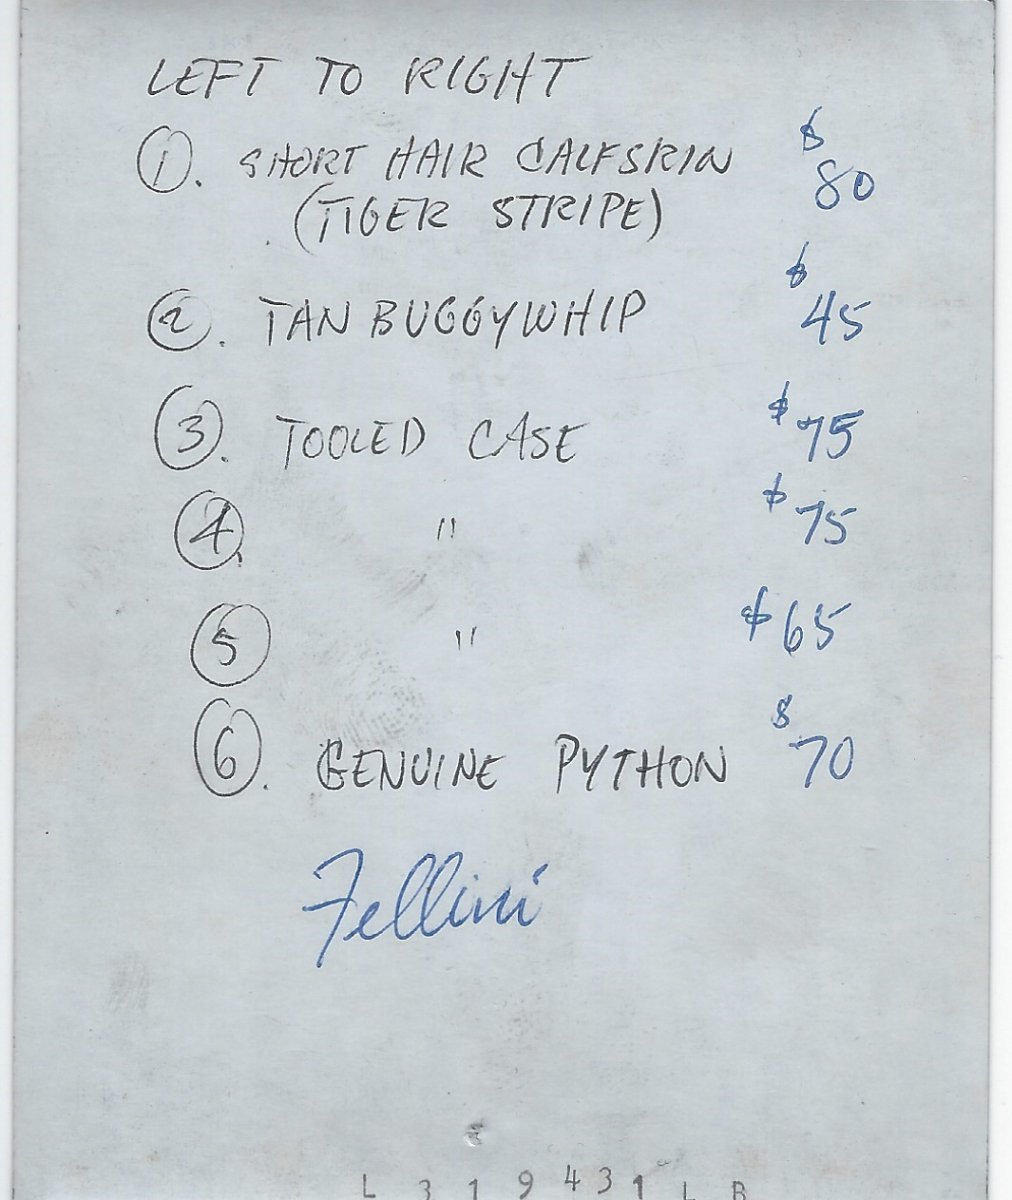 LEFT TO RIGHT
1. SHORT HAIR CALFSKIN $80
(TIGER STRIPE)
2. TAN BUGGYWHIP $45
3. TOOLED CASE $75
4. " $75
5 " $65
6. GENUINE PYTHON $70
Fellini
L 319431 L B